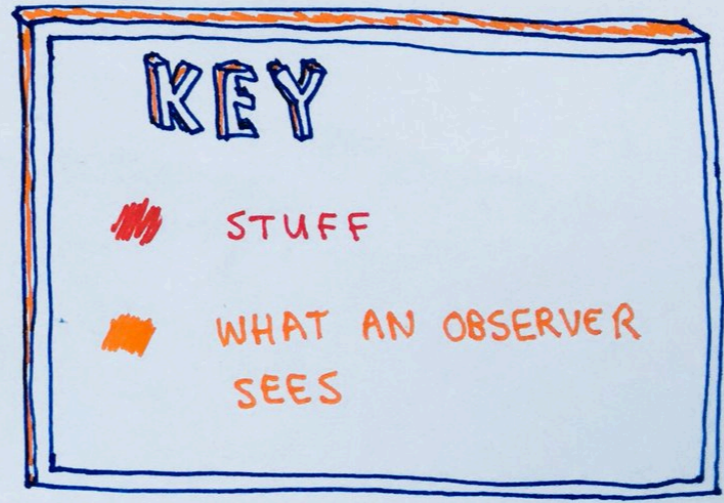 KEY
STUFF
WHAT AN OBSERVER
SEES